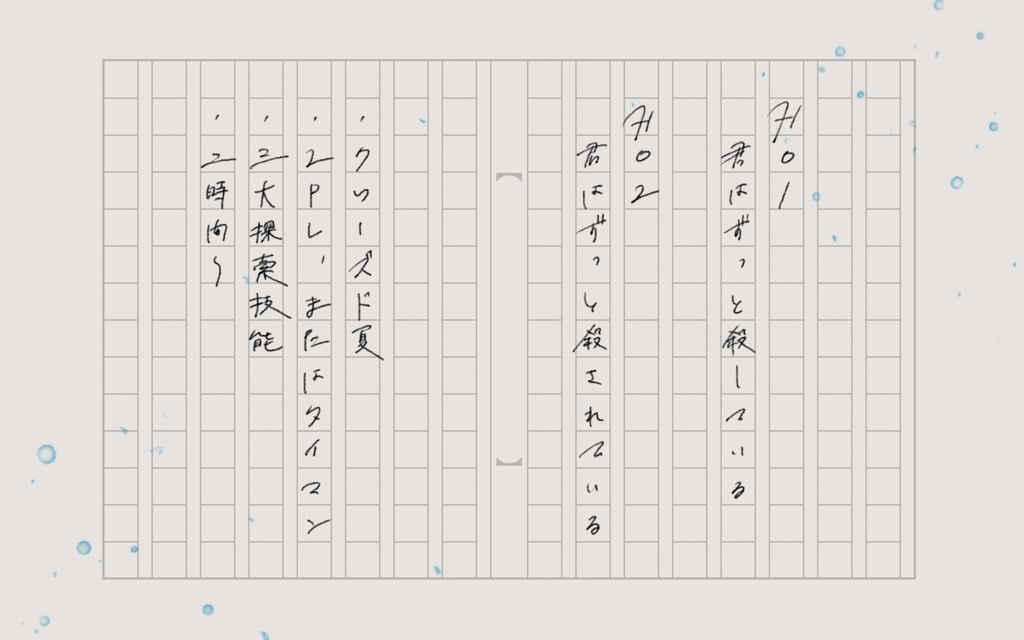 HO1
君はずっと殺している
HO2
君はずっと殺されている
・クローズド夏
・2PL、またはタイマン
・三大探索技能
・二時間〜